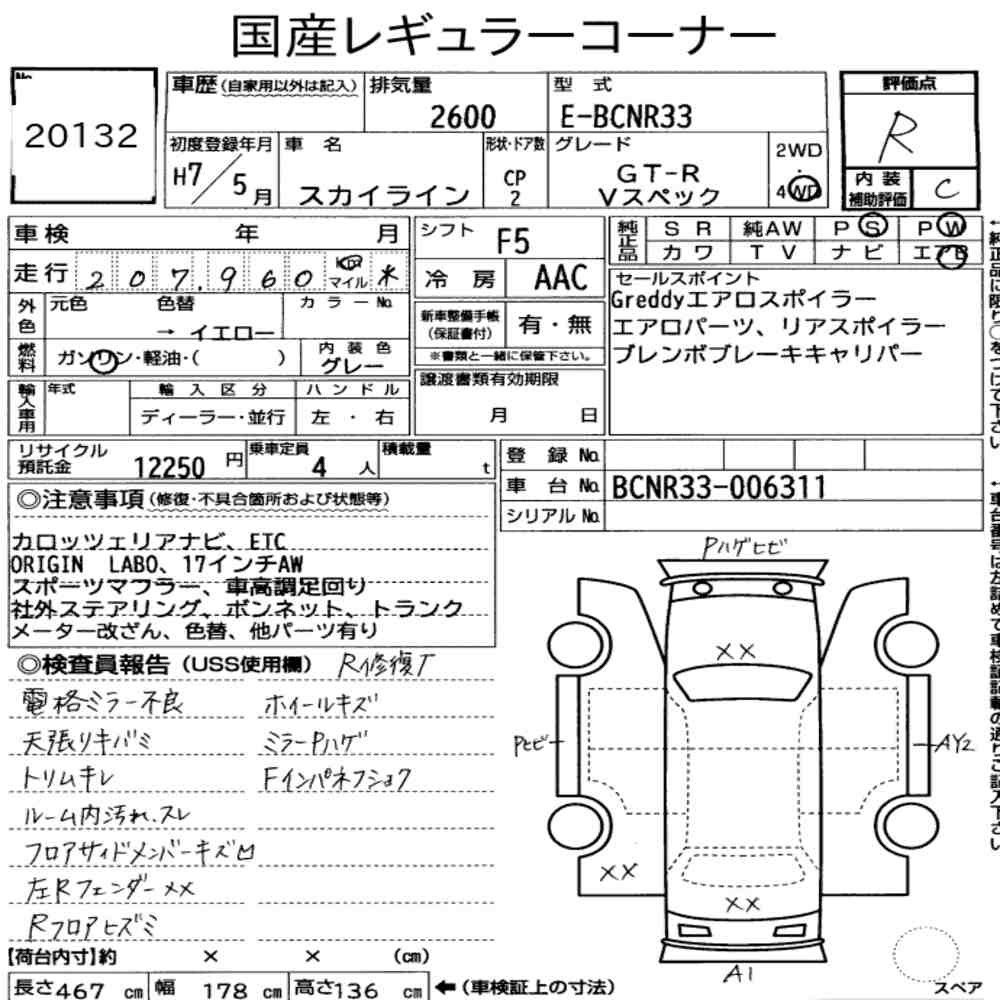 国産レギュラーコーナー
No.
20132
車歴 (自家用以外は記入)
排気量
2600
型 式
E-BCNR33
評価点
R
内装補助評価
C
初度登録年月
H7/5月
車 名
スカイライン
形状・ドア数
CP
2
グレード
GT-R
Vスペック
2WD
4WD
車検 年 月
走行 207,960 km マイル ※
シフト
F5
冷 房
AAC
純正品
S R 純AW P S P W
カ ワ T V ナ ビ エアB
外色
元色 色替 カ ラ ー No.
→ イエロー
燃料
ガソリン・軽油・( )
内 装 色
グレー
新車整備手帳
(保証書付)
有・無
※書類と一緒に保管下さい。
セールスポイント
Greddyエアロスポイラー
エアロパーツ、リアスポイラー
ブレンボブレーキキャリパー
輸入車用
年式
輸 入 区 分
ハ ン ド ル
ディーラー・並行
左 ・ 右
譲渡書類有効期限
月 日
リサイクル預託金
12250 円
乗車定員
4 人
積載量
t
登 録 No.
車 台 No.
BCNR33-006311
シリアル No.
◎注意事項 (修復・不具合箇所および状態等)
カロッツェリアナビ、ETC
ORIGIN LABO、17インチAW
スポーツマフラー、車高調足回り
社外ステアリング、ボンネット、トランク
メーター改ざん、色替、他パーツ有り
◎検査員報告 (USS使用欄) R修復了
電格ミラー不良 ホイールキズ
天張リキバミ ミラーPハゲ
トリムキレ Fインパネフショク
ルーム内汚れ、スレ
フロアサイドメンバーキズ凹
左Rフェンダー××
Rフロアヒズミ
【荷台内寸】約 × × (cm)
長さ467 cm 幅 178 cm 高さ136 cm ←(車検証上の寸法)
Pハゲヒビ
××
Pヒビ
AY2
××
××
A1
スペア
←純正品に限り○をつけて下さい
←車台番号は左詰めで車検証記載の通りご記入下さい